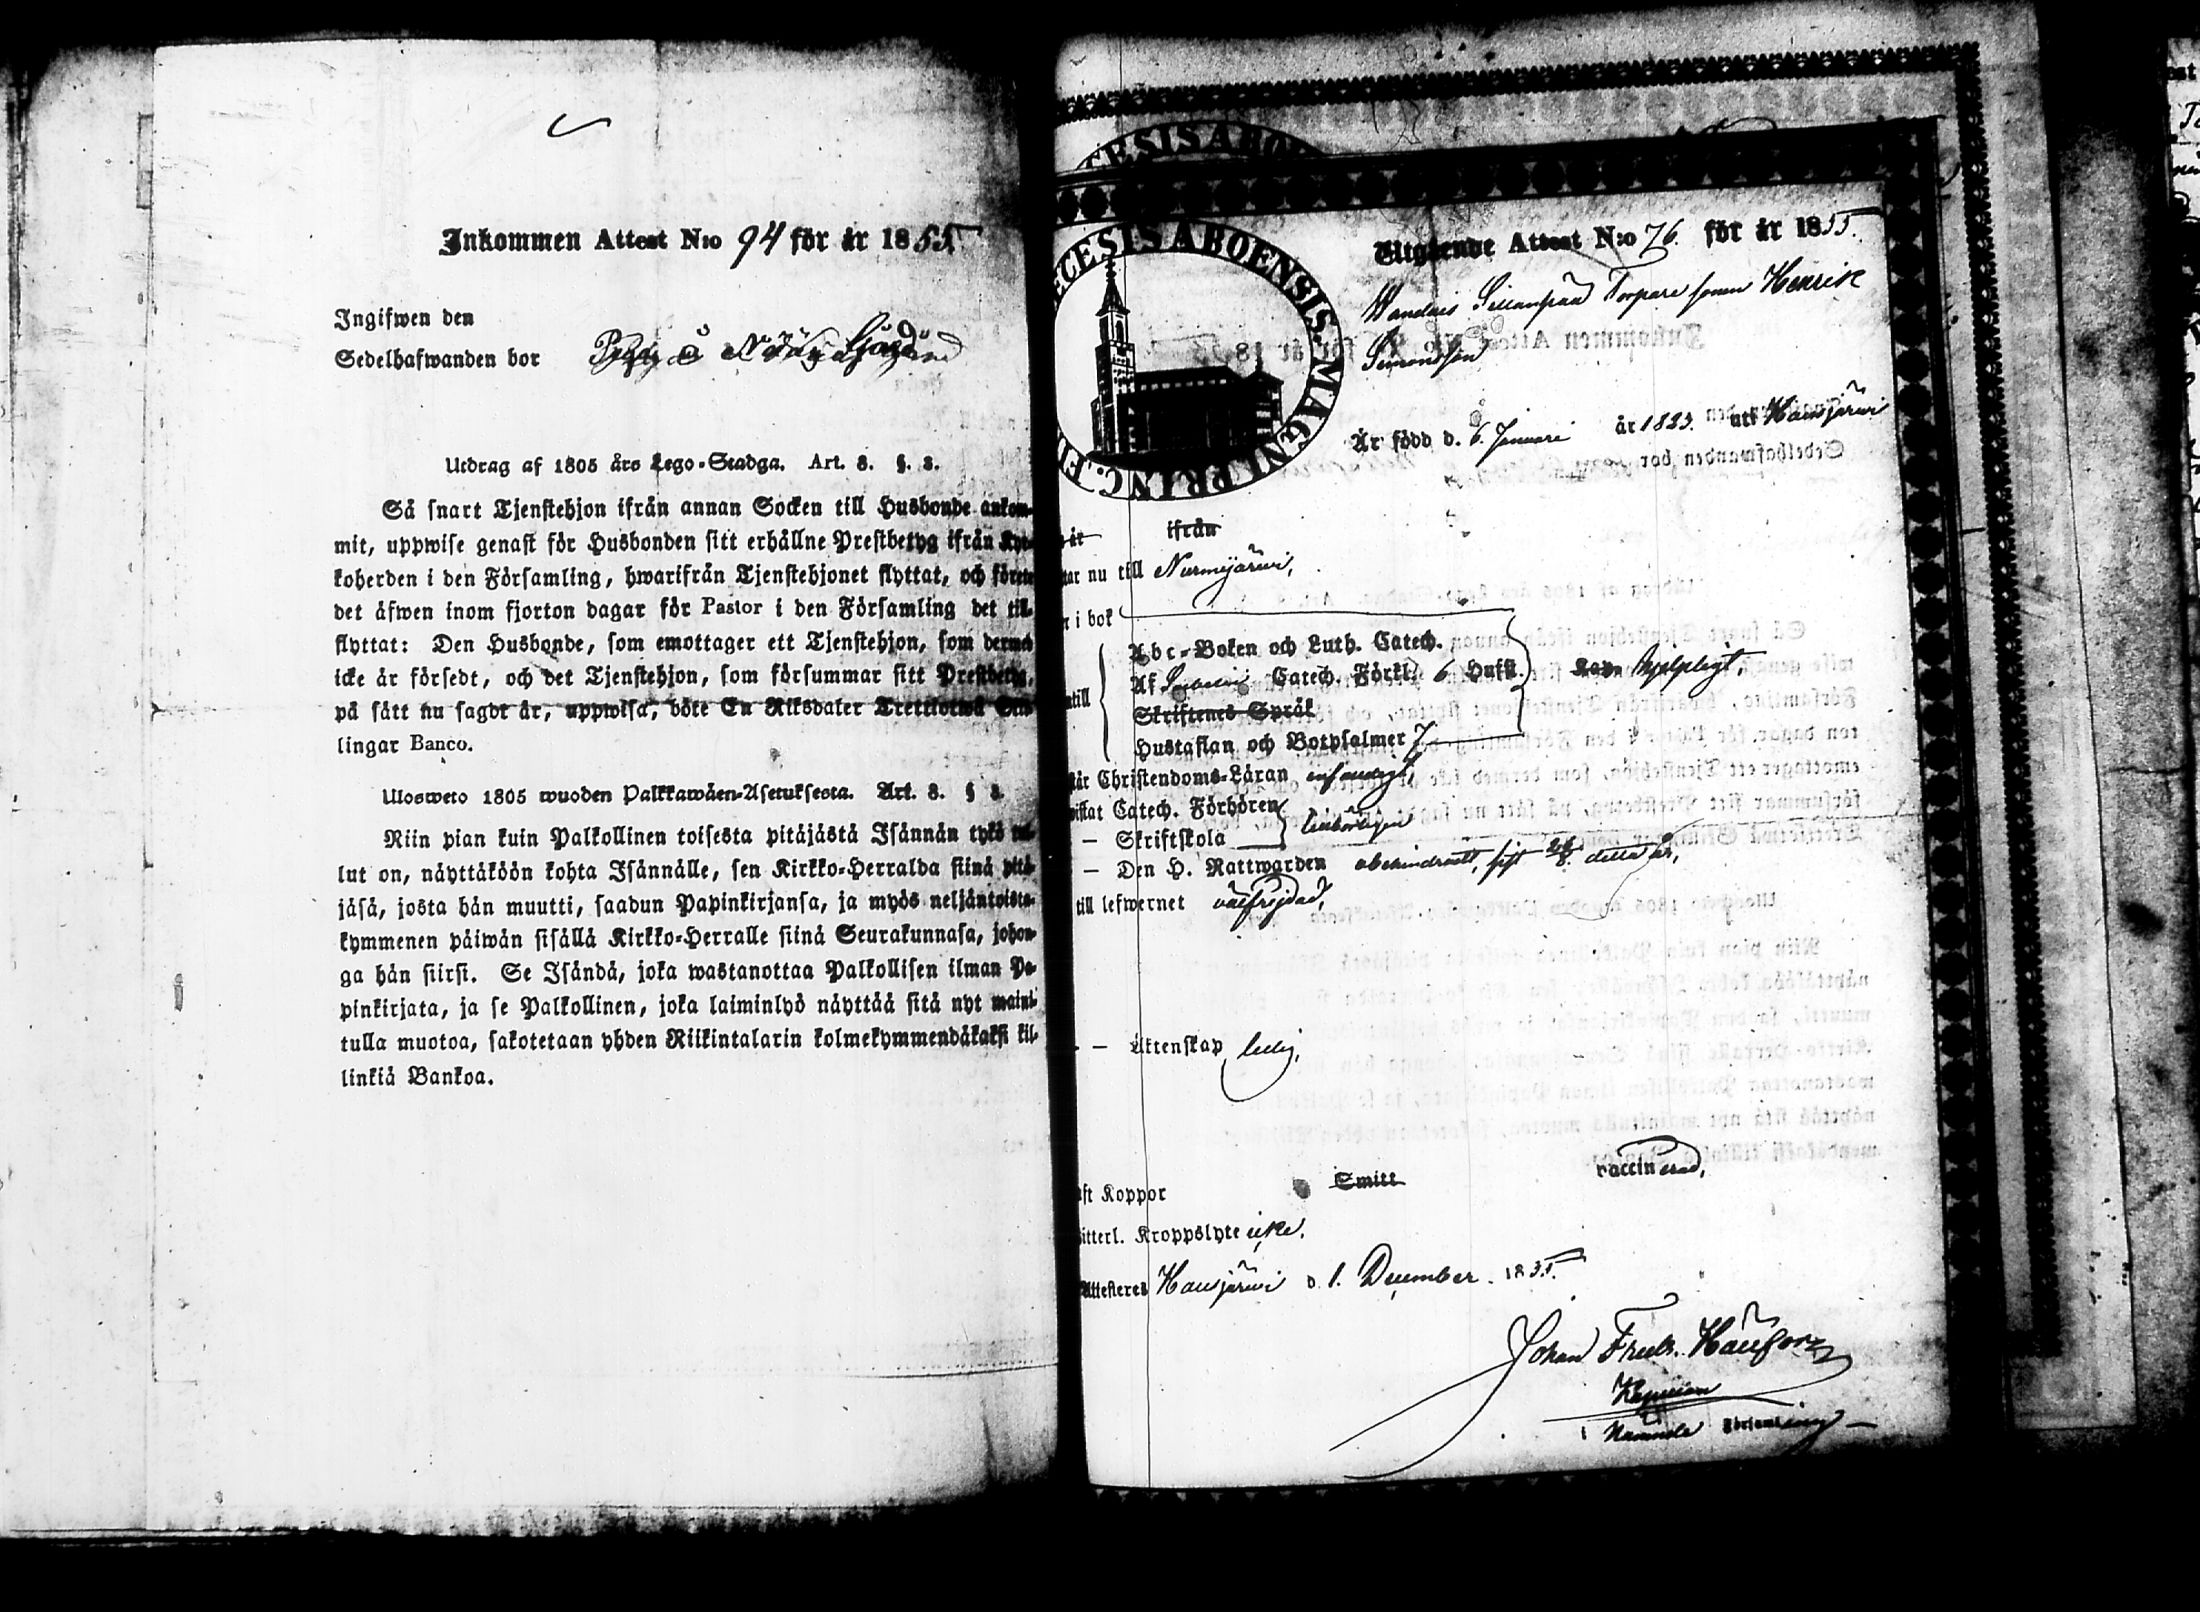 Inkommen Attest N:o 94 för år 1855.
Ingifwen den
Sedelhafwanden bor
Utdrag af 1805 års Lego-Stadga. Art. 8. §. 8.
Så snart Tjenstehjon ifrån annan Socken till Husbonde ankom-
mit, uppwise genast för Husbonden sitt erhållne Prestbetyg ifrån Kyr-
koherden i den Församling, hwarifrån Tjenstehjonet flyttat, och förete
det äfwen inom fjorton dagar för Pastor i den Församling det till-
flyttat: Den Husbonde, som emottager ett Tjenstehjon, som dermed
icke är försedt, och det Tjenstehjon, som försummar sitt Prestbetyg,
på sätt nu sagdt är, uppwisa, böte En Riksdaler Trettiotwå Skil-
lingar Banco.
Ulosweto 1805 wuoden Palkkawäen-Asetuksesta. Art. 8. § 8.
Niin pian kuin Palkollinen toisesta pitäjästä Isännän tykö tul-
lut on, näyttäköön kohta Isännälle, sen Kirkko-Herralda siinä pitä-
jäsä, josta hän muutti, saadun Papinkirjansa, ja myös neljäntoista-
kymmenen päiwän sisällä Kirkko-Herralle siinä Seurakunnasa, johon-
ga hän siirsi. Se Isändä, joka wastanottaa Palkollisen ilman Pa-
pinkirjata, ja se Palkollinen, joka laiminlyö näyttää sitä nyt maini-
tulla muotoa, sakotetaan yhden Riikintalarin kolmekymmendäkaksi kil-
linkiä Bankoa.
CESIS ABOENSIS MAGNI PRINC. FI
Utgående Attest N:o 76. för år 1855.
Torpare sonen Henrik
Simonsson
Är född d. 6. Januari år 1833. uti Hausjärwi
år ifrån
tar nu till Nurmijärwi,
r i bok
Abc-Boken och Luth. Catech.
ntill Af Catech. Förkl. 6 Hufst. Kap. hjelpligt,
Skriftenes Språk
Hustaflan och Botpsalmer 7
står Christendoms-Läran
wistat Catech. Förhören
— Skriftskola
— Den H. Nattwarden obehindradt, sist detta år,
till lefwernet wälfrejdad,
— — Äktenskap ledig,
aft Koppor Smitt vaccinerad,
itterl. Kroppslyte icke.
Attesteres Hausjärwi d. 1. December. 1855.
Johan Fredr. Häufor
Kapellan
i Församling